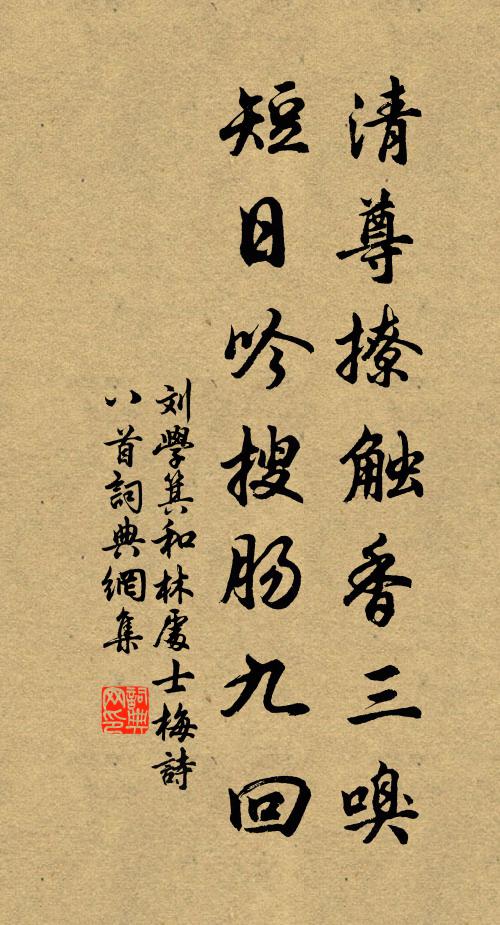 清尊撩触香三嗅
短日吟搜肠九回
刘學箕和林處士梅詩
八首詞典網集
詞典网印